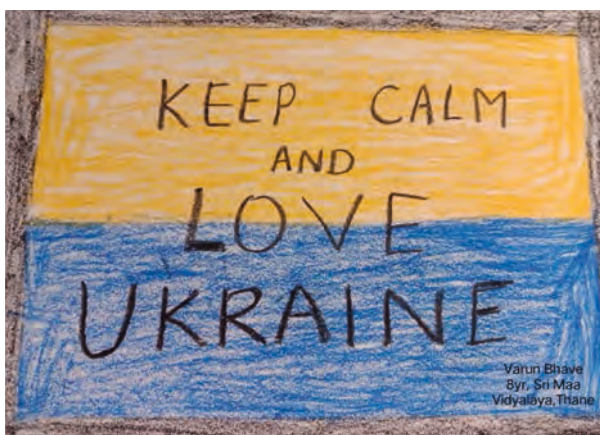 KEEP CALM
AND
LOVE
UKRAINE
Varun Bhave
8yr, Sri Maa
Vidyalaya,Thane